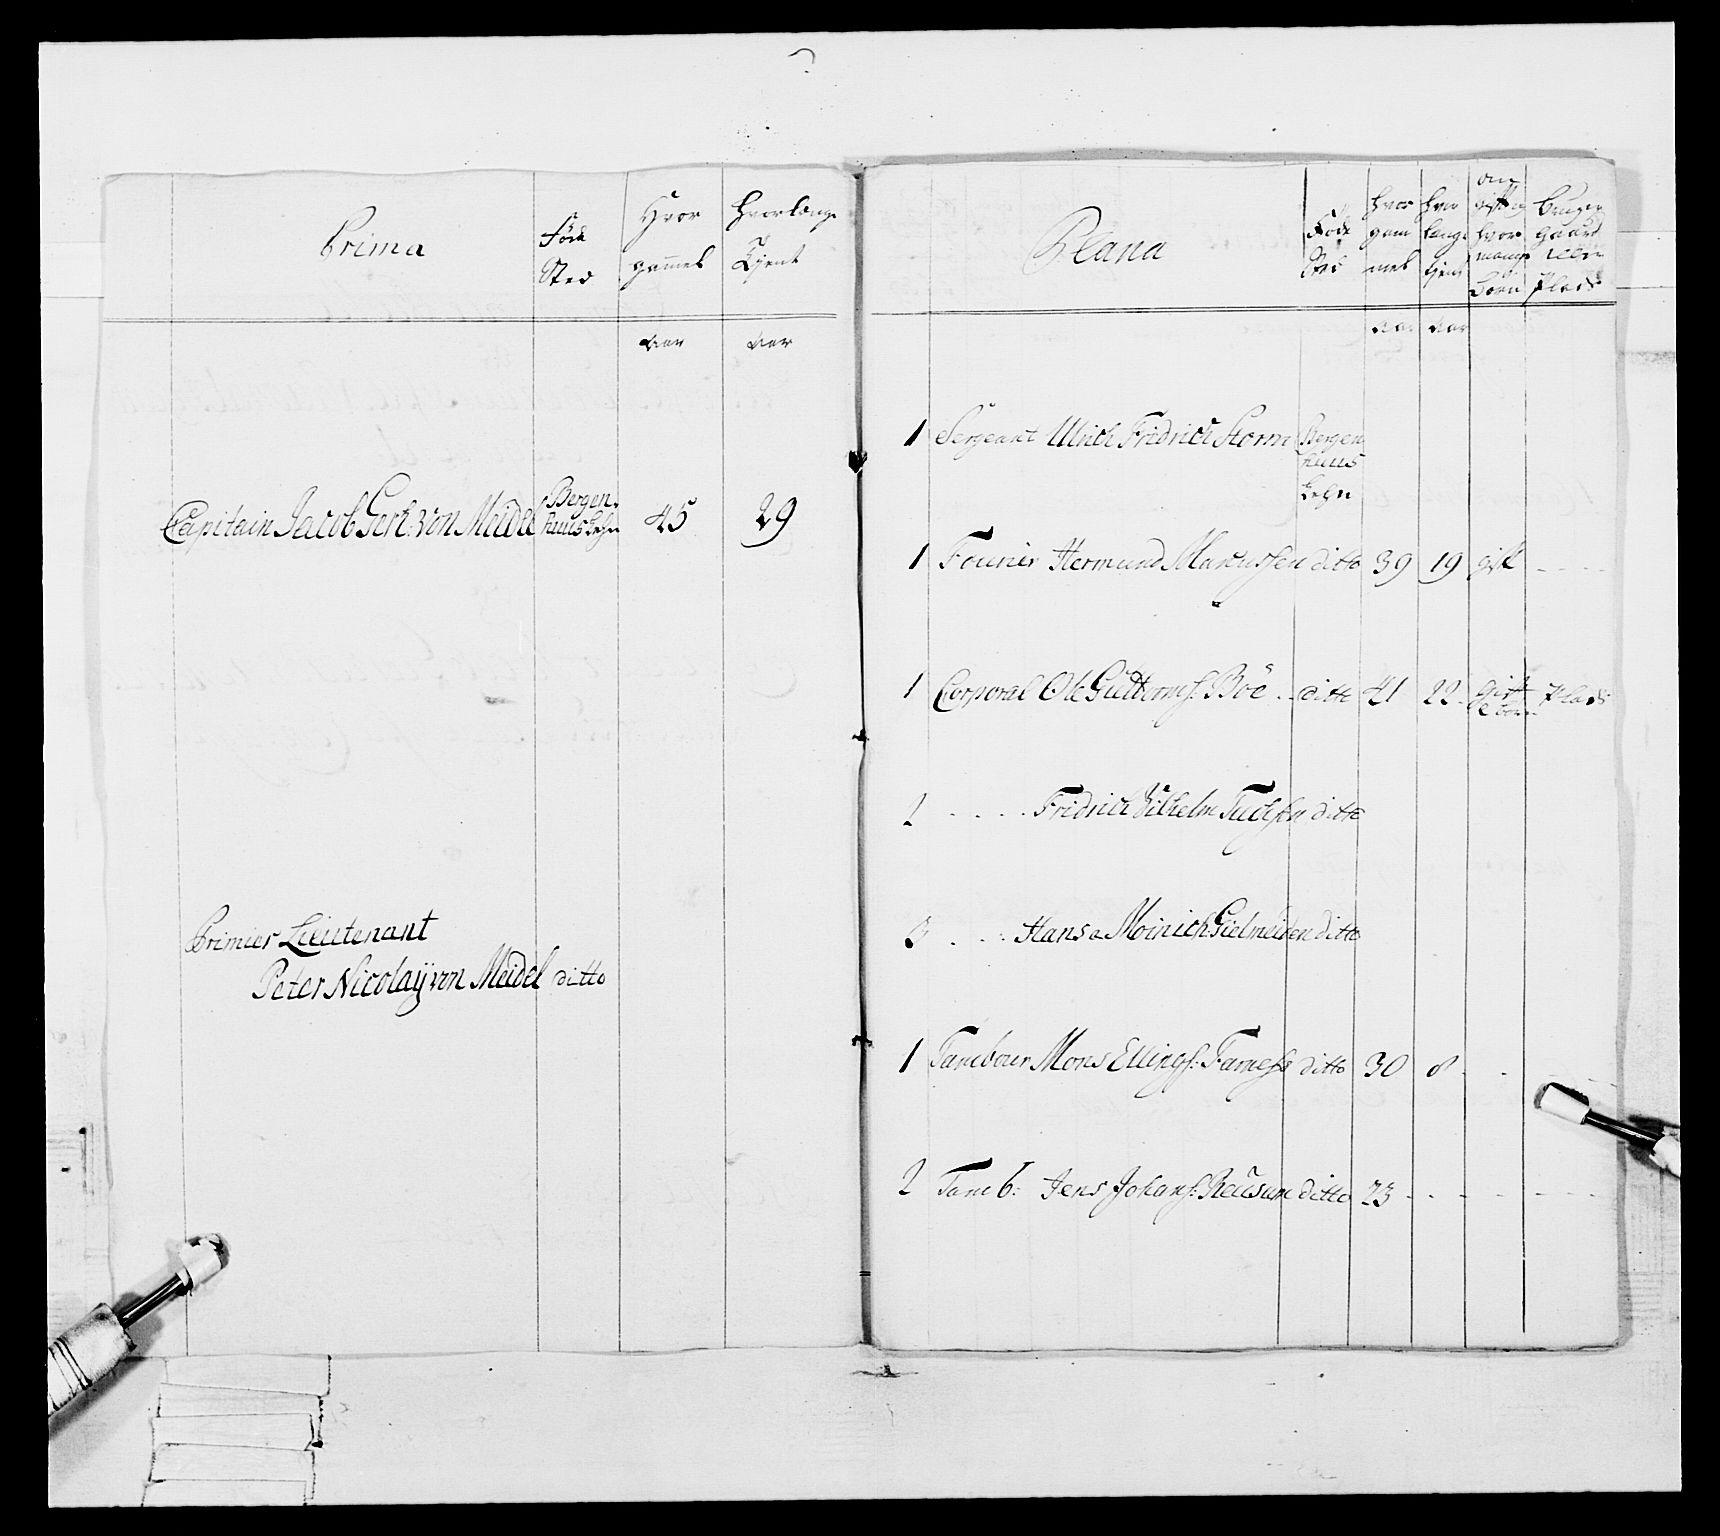 Prima
Føde
Sted
Hvor
gammel
Hvorlænge
Tient
aar
aar
Capitain Jacob Gerh: von Meidel
Bergen-
huus Lehn
45
29
Primier Lieutenant
Peter Nicolaÿ von Meidel ditto
Plana
Føde
Sted
hvor
gam
mel
hvor
længe
tient
om
gift og
hvor
mange
børn
bruger
gaard
eller
Plads
aar
aar
1 Sergeant Ulrich Fridrich Storm Bergen
huus
Lehn
1 Fourier Hermund Marcussen ditto 39 19 gift
1 Corporal Ole Guttorms: Böe ditto 41 22 gift Plads
2 Fridrich Vilhelm Tuchsen ditto
3 Hans Moinich Gielmeiden ditto
1 Tambour Mons Ellings: Farness ditto 30 8
2 Tamb: Jens Johans: Reusum ditto 23